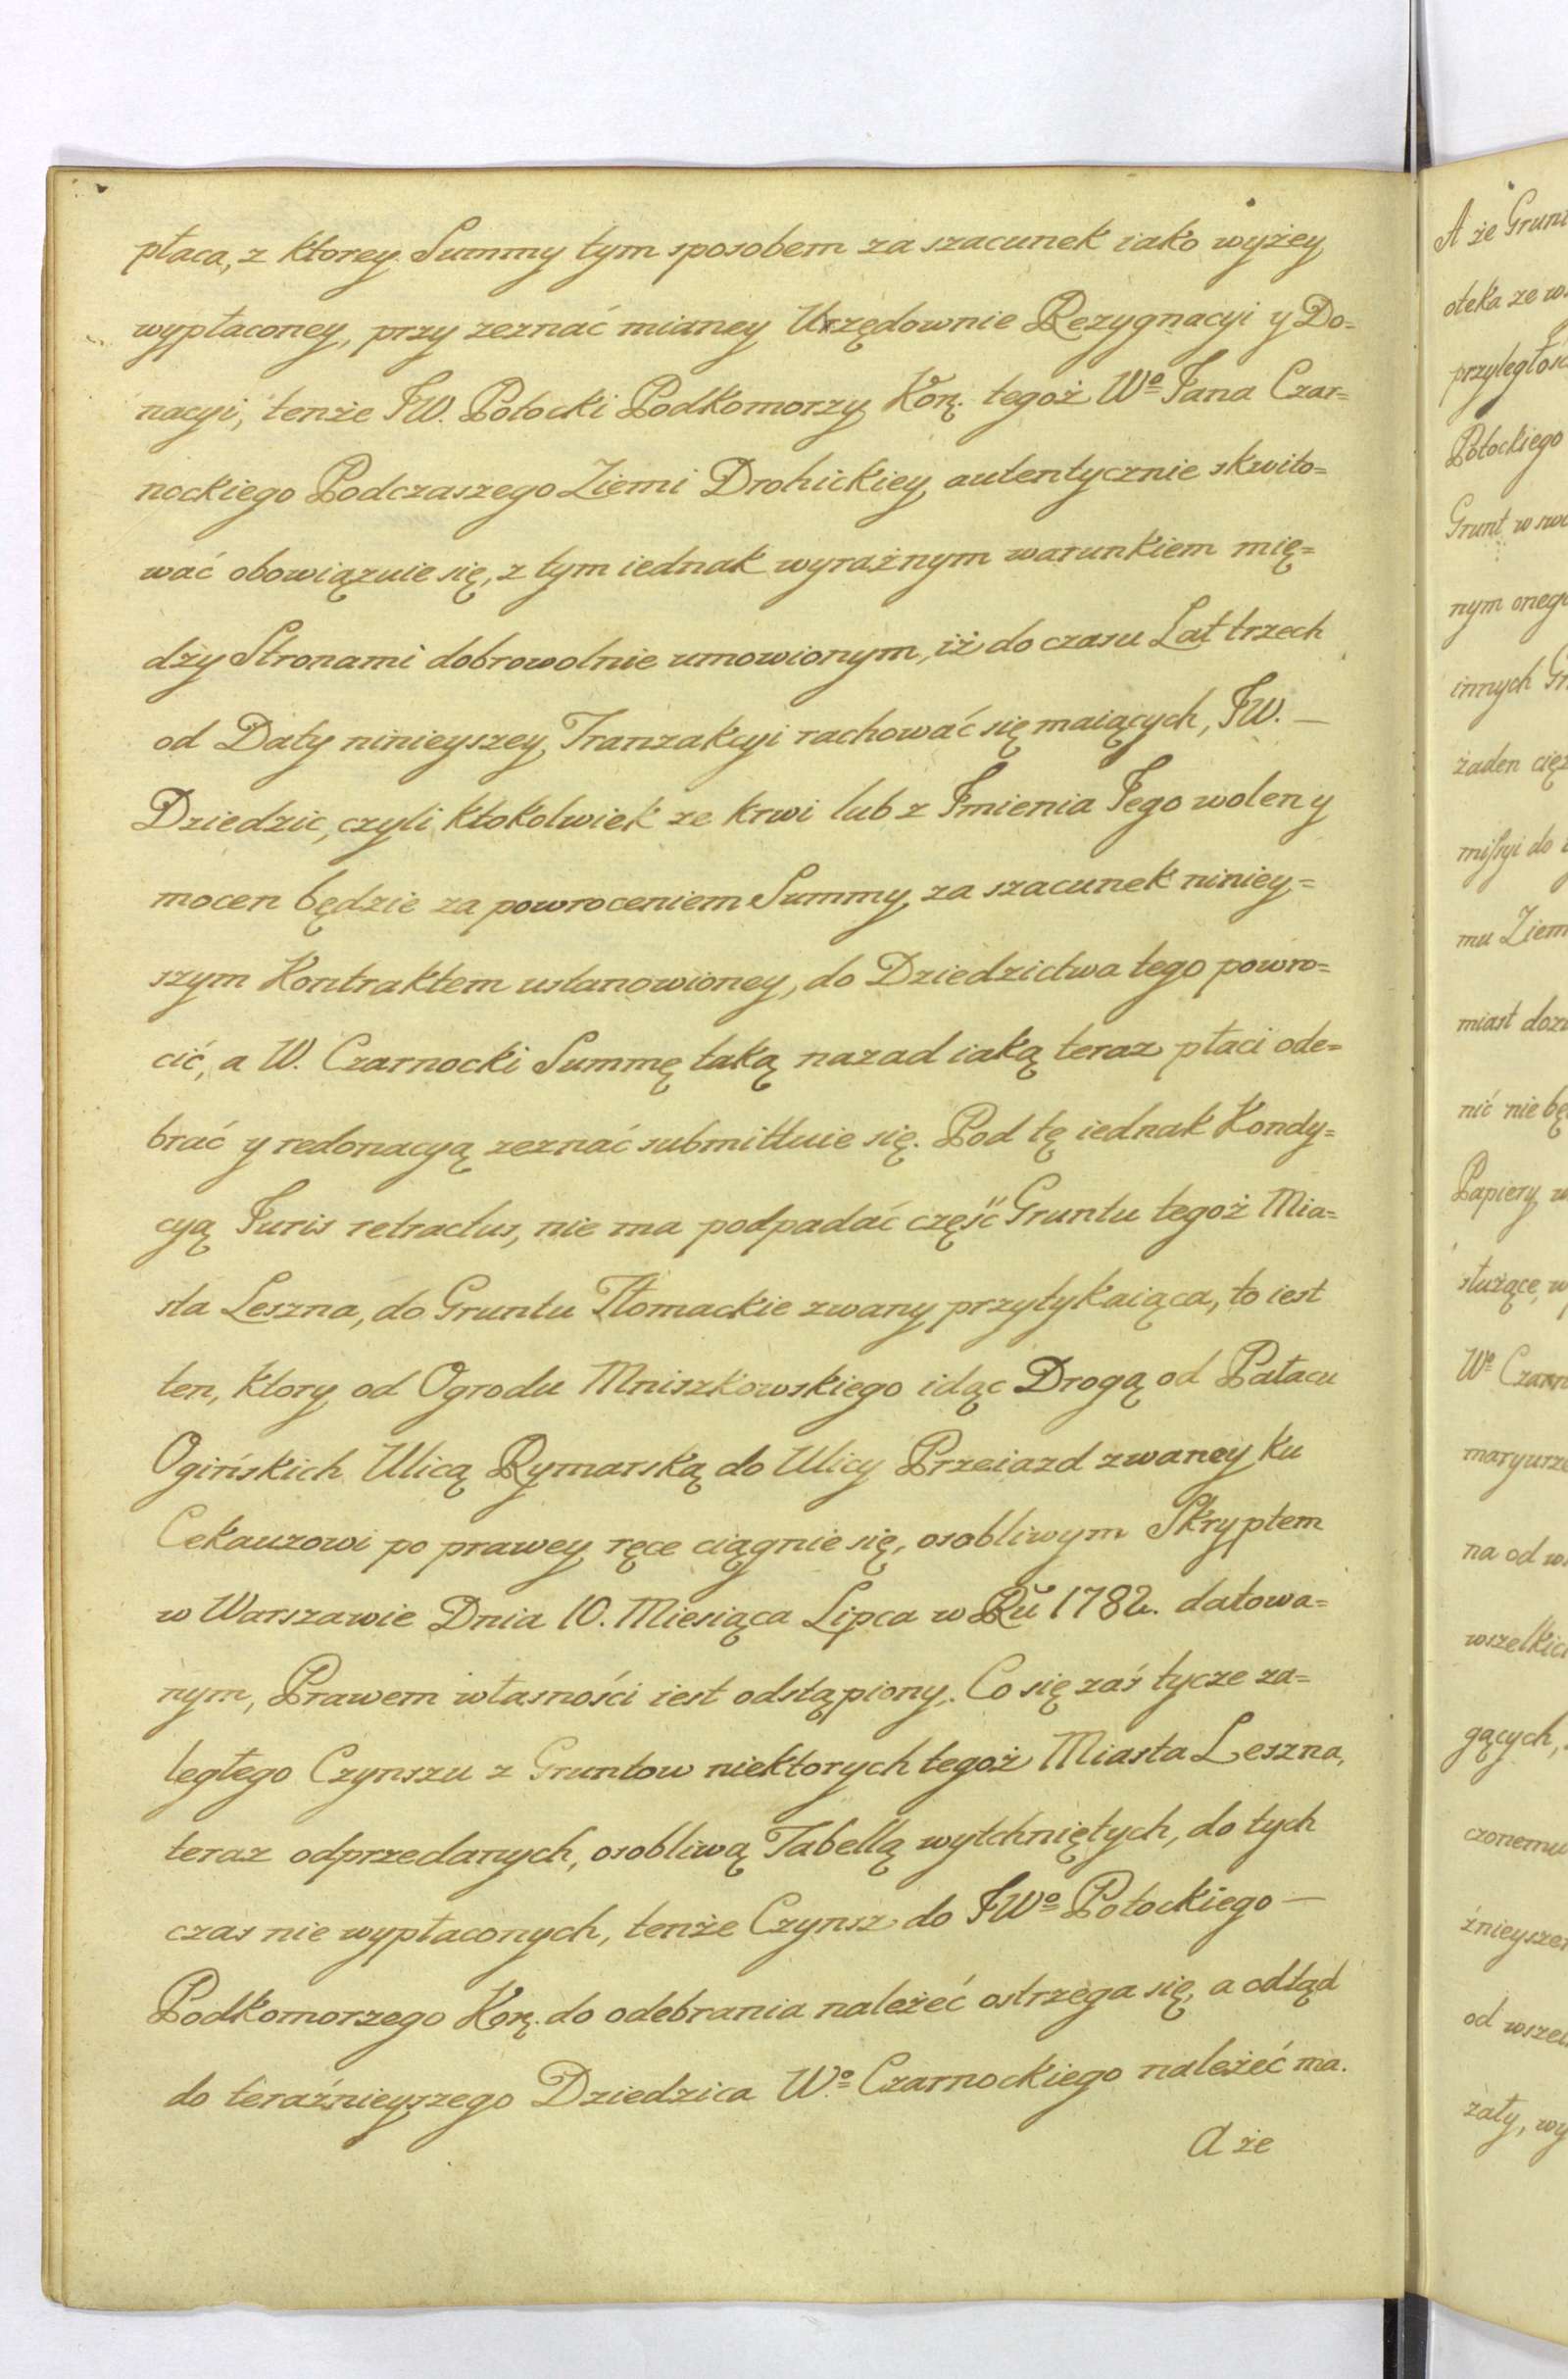 płaca, z ktorey Summy tym sposobem za szacunek iako wyżey
wypłaconey, przy zeznać mianey Urzędownie Rezygnacyi y Do=
nacyi, tenże JW. Potocki Podkomorzy Korţ. tegoż Wº Jana Czar=
nockiego Podczaszego Ziemi Drohickiey autentycznie skwito=
wać obowiązuie się, z tym iednak wyraźnym warunkiem mię=
dzy Stronami dobrowolnie umowionym, iż do czasu Lat trzech
od Daty ninieyszey Tranzakcyi rachować się maiących, JW. —
Dziedzic, czyli ktokolwiek ze krwi lub z Imienia Jego wolen y
mocen będzie za powroceniem Summy za szacunek niniey=
szym Kontraktem ustanowioney, do Dziedzictwa tego powro=
cić, a W. Czarnocki Summę taką nazad iaką teraz płaci ode=
brać y redonacyą zeznać submittuie się. Pod tę iednak Kondy=
cyą Juris retractus, nie ma podpadać część Gruntu tegoż Mia=
sta Leszna, do Gruntu Tłomackie zwany przytykaiąca, to iest
ten, ktory od Ogrodu Mniszkowskiego idąc Drogą od Pałacu
Ogińskich Ulicą Rymarską do Ulicy Przeiazd zwaney ku
Cekauzowi po prawey ręce ciągnie się, osobliwym Skryptem
w Warszawie Dnia 10. Miesiąca Lipca w Rŭ 1782. datowa=
nym, Prawem własności iest odstąpiony. Co się zaś tycze za=
ległego Czynszu z Gruntow niektorych tegoż Miasta Leszna,
teraz odprzedanych, osobliwą Tabellą wytchniętych, do tych
czas nie wypłaconych, tenże Czynsz do JWº Potockiego —
Podkomorzego Korţ. do odebrania należeć ostrzega się, a odtąd
do teraźnieyszego Dziedzica Wº Czarnockiego należeć ma.
A że
A że Grun
oteka ze w
przyległoś
Potockiego
Grunt w
nym oneg
innych Gr
żaden cię
missyi do
mu Ziem
miast
nić nie bę
Papiery w
służące, w
Wº Czarn
na od w
wszelkic
gących,
czonemu
źnieysze
od wszel
zały, wy